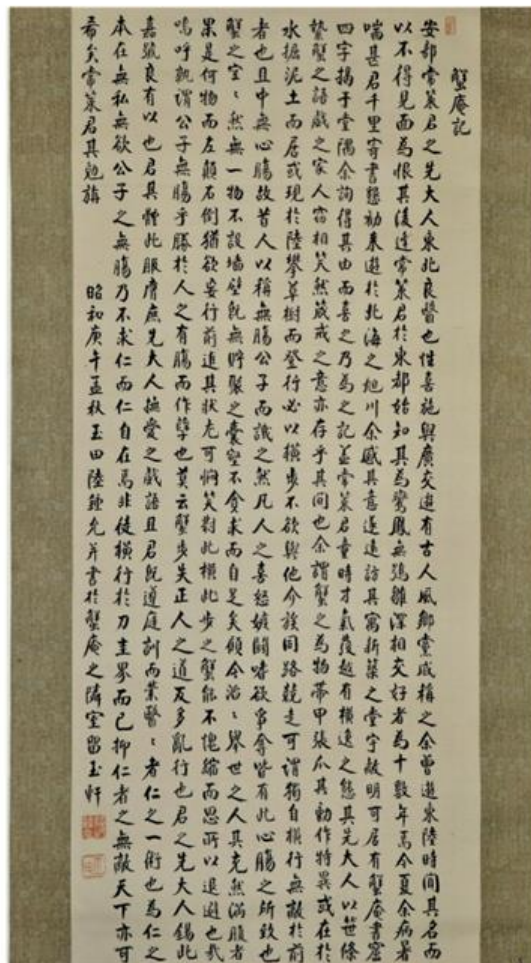 蟹庵記
安部常菜君之先大人東北良醫也性喜施與廣交遊有古人風鄉黨咸稱之余曾遊東陸時聞其名而
以不得見面為恨其後逢常菜君於東都始知其為鸞鳳無鴉雛深相交好者為十數年焉今夏余病暑
喘甚君千里寄書懇勸來遊於北海之旭川余感其意遂遠訪其寓新築之堂宇敞明可居有蟹庵書窟
四字揭于堂隅余詢得其由而喜之乃為之記蓋常菜君童時才氣發越有橫逸之態其先大人以笹條
縶蟹之語戲之家人窃相笑然箴戒之意亦存乎其間也余謂蟹之為物帶甲張爪其動作特異或在於
水掘泥土而居或現於陸攀草樹而登行必以橫步不欲與他介族同路競走可謂獨自橫行無敵於前
者也且中無心腸故昔人以稱無腸公子而譏之然凡人之喜怒嫉鬪嗜欲爭奪皆有此心腸之所致也
蟹之室々然無一物不設墻壁既無貯聚之囊空不貪求而自足矣顧今治々舉世之人其充然滿腹者
果是何物而左顛右倒猶欲妄行前進其狀尤可憫笑對此橫此步之蟹能不愧縮而思所以退避也哉
嗚呼孰謂公子無腸乎勝於人之有腸而作孽也莫云蟹步失正人之道反多亂行也君之先大人錫此
嘉號良有以也君具體此服膺庶先大人撫愛之戲語且君既道庭訓而業醫々者仁之一術也為仁之
本在無私無欲公子之無腸乃不求仁而仁自在焉非徒橫行於刀圭界而已抑仁者之無敵天下亦可
希矣常菜君其勉旃
昭和庚午孟秋玉田陸鍾允并書於蟹庵之隣室留玉軒